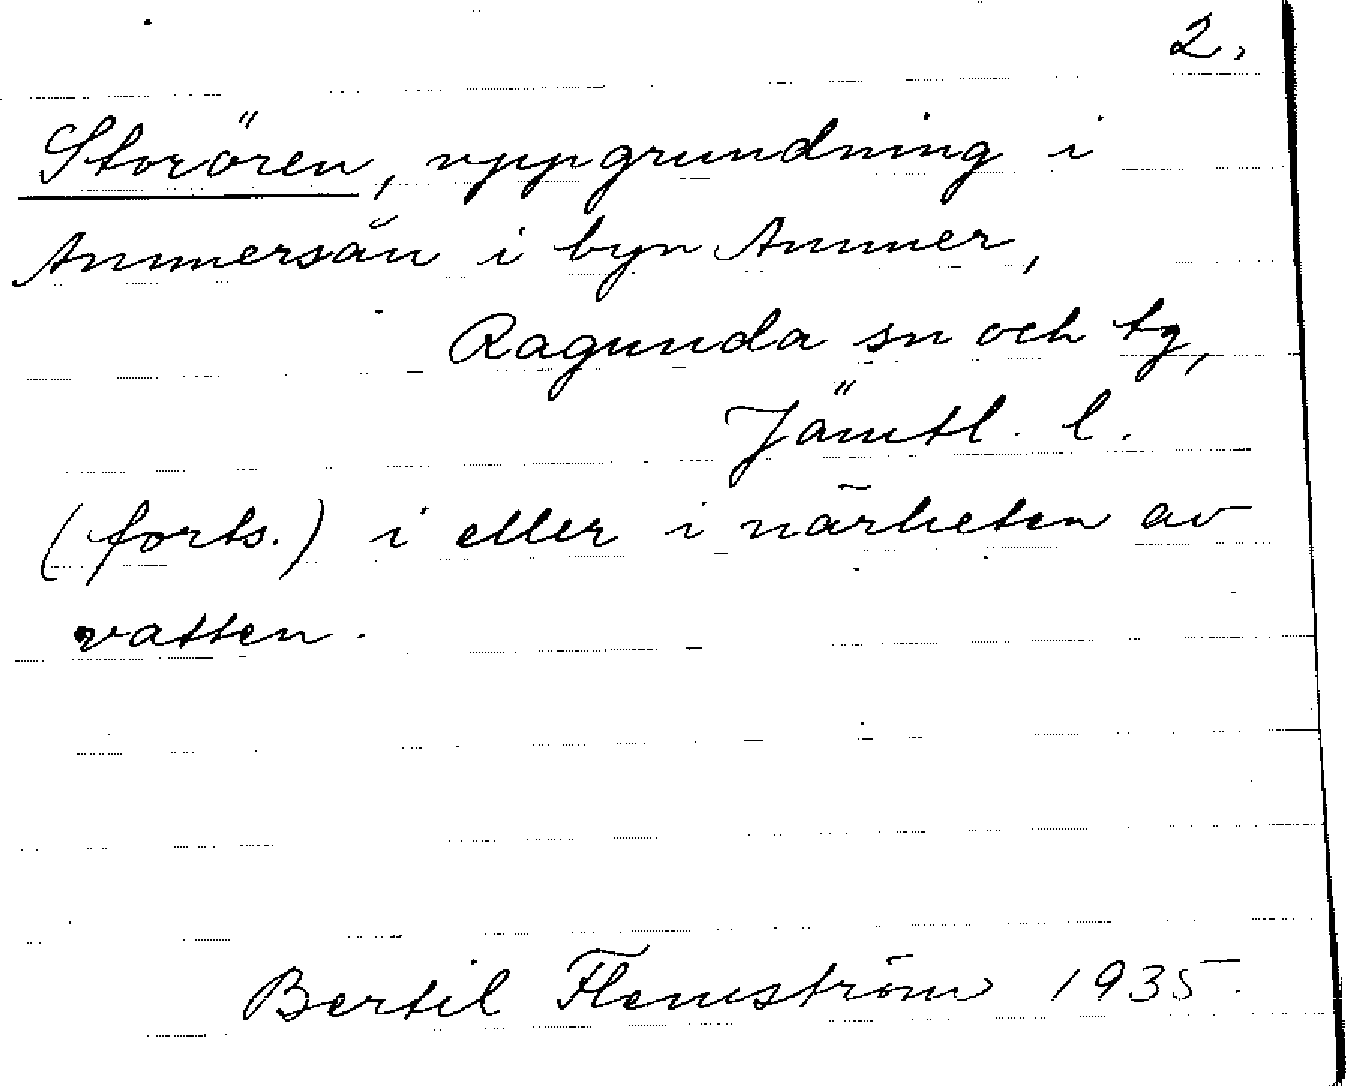 2.
Storören, uppgrundning i
Ammersån i byn Ammer,
Ragunda sn och tg,
Jämtl. l.
(forts.) i eller i närheten av
vatten.
Bertil Flemström 1935.